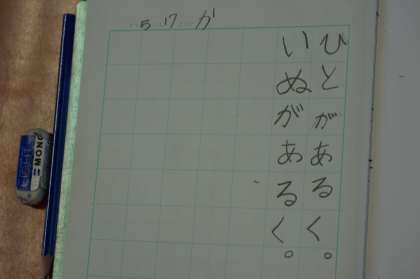 5 17 か
ひとがあるく。
いぬがあるく。
LIGHT
MONO